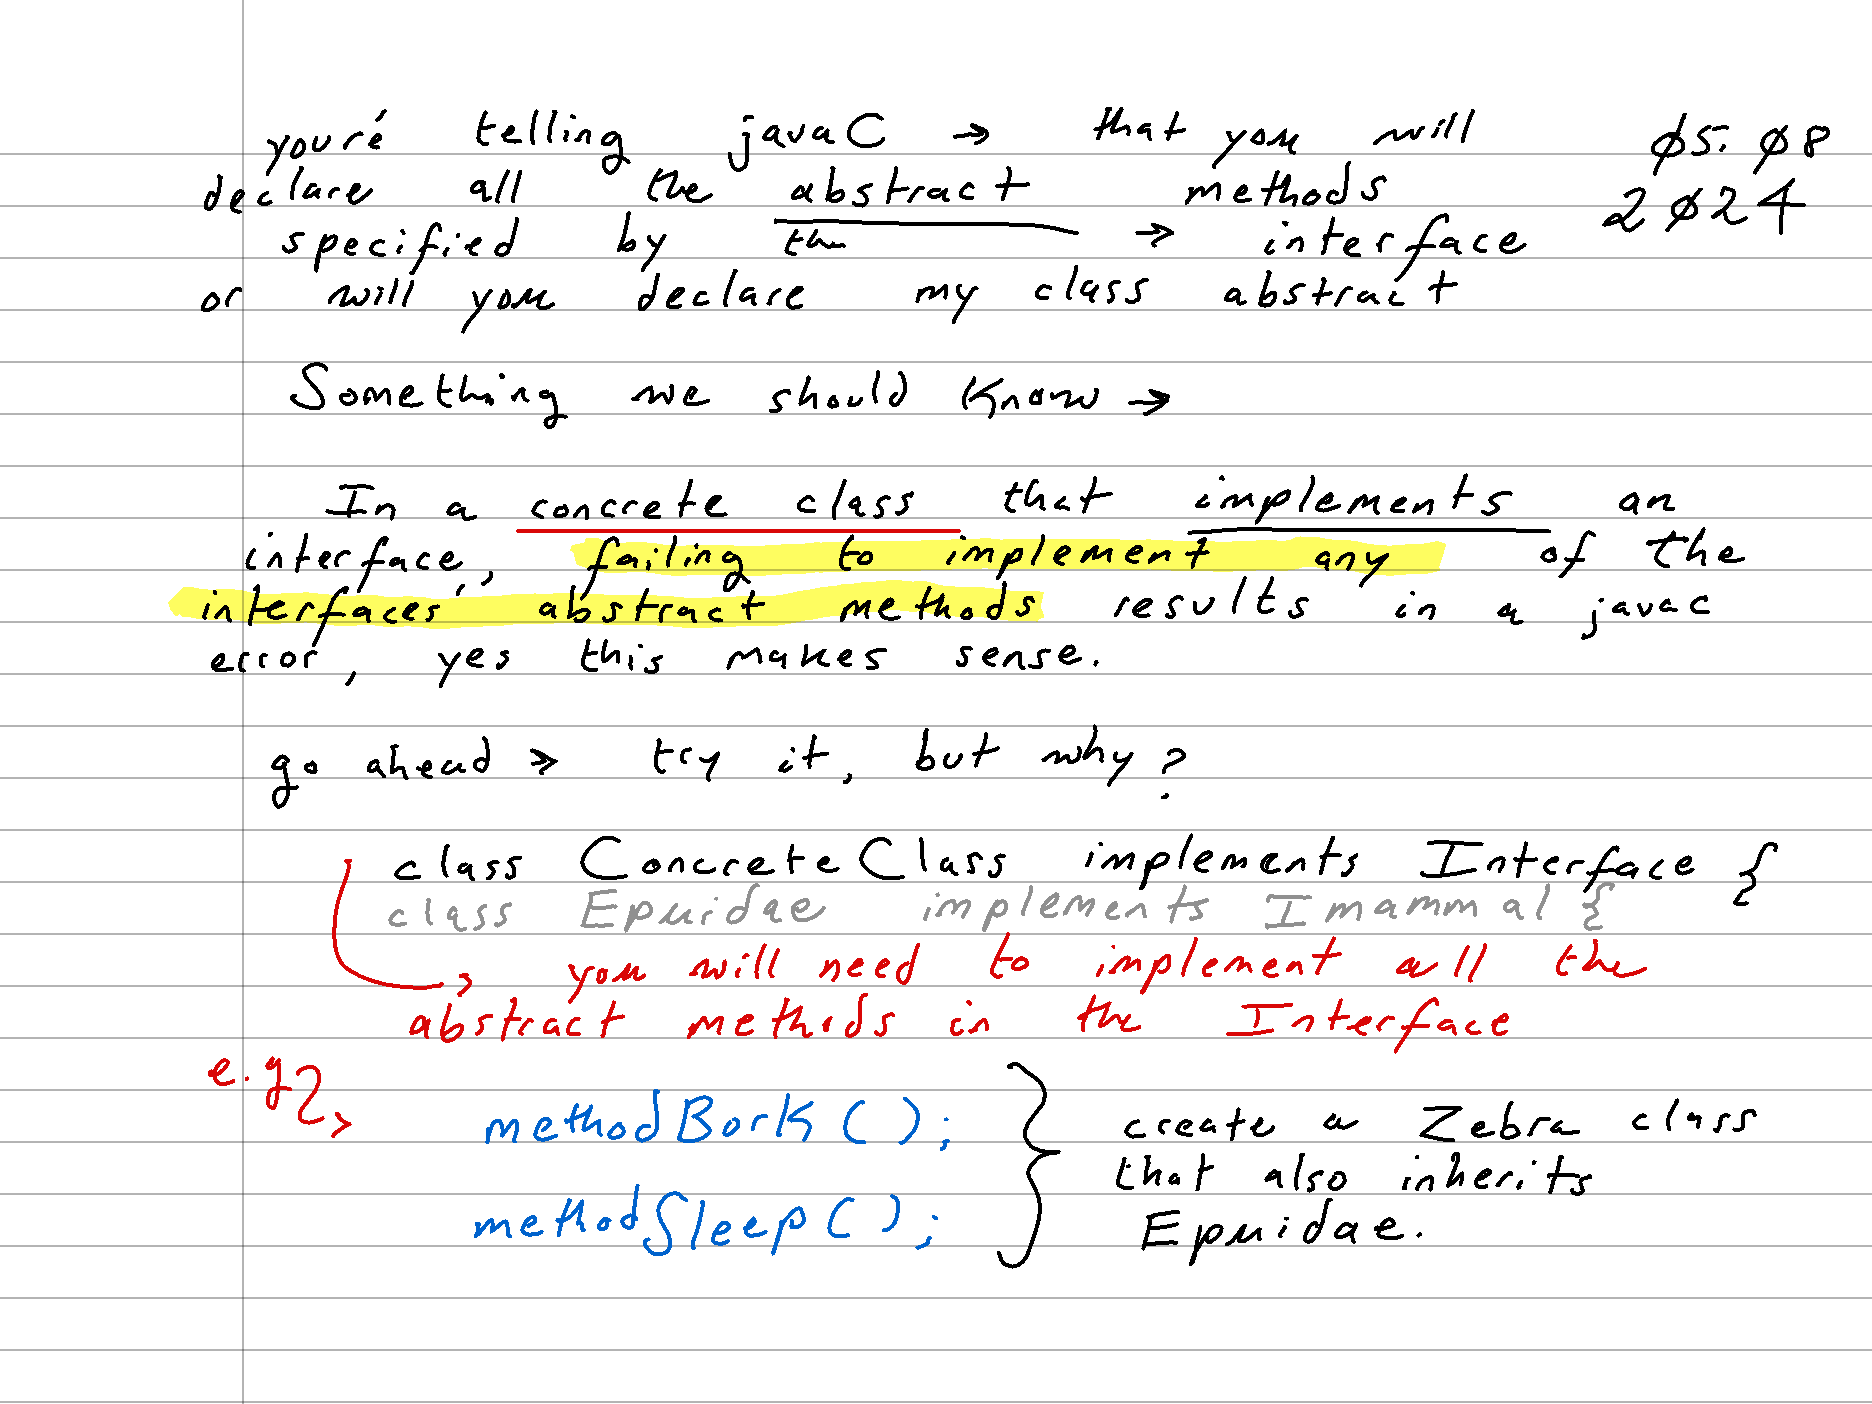 youré telling javaC → that you will
ø5. ø8
declare all the abstract methods
2ø24
specified by the → interface
or will you declare my class abstract
Something we should Know →
In a concrete class that implements an
interface, failing to implement any of the
interfaces' abstract methods results in a javac
error, yes this makes sense.
go ahead → try it, but why?
class ConcreteClass implements Interface {
class Epuidae implements Imammal {
you will need to implement all the
abstract methods in the Interface
e.g
methodBork();
methodSleep();
create a Zebra class
that also inherits
Epuidae.